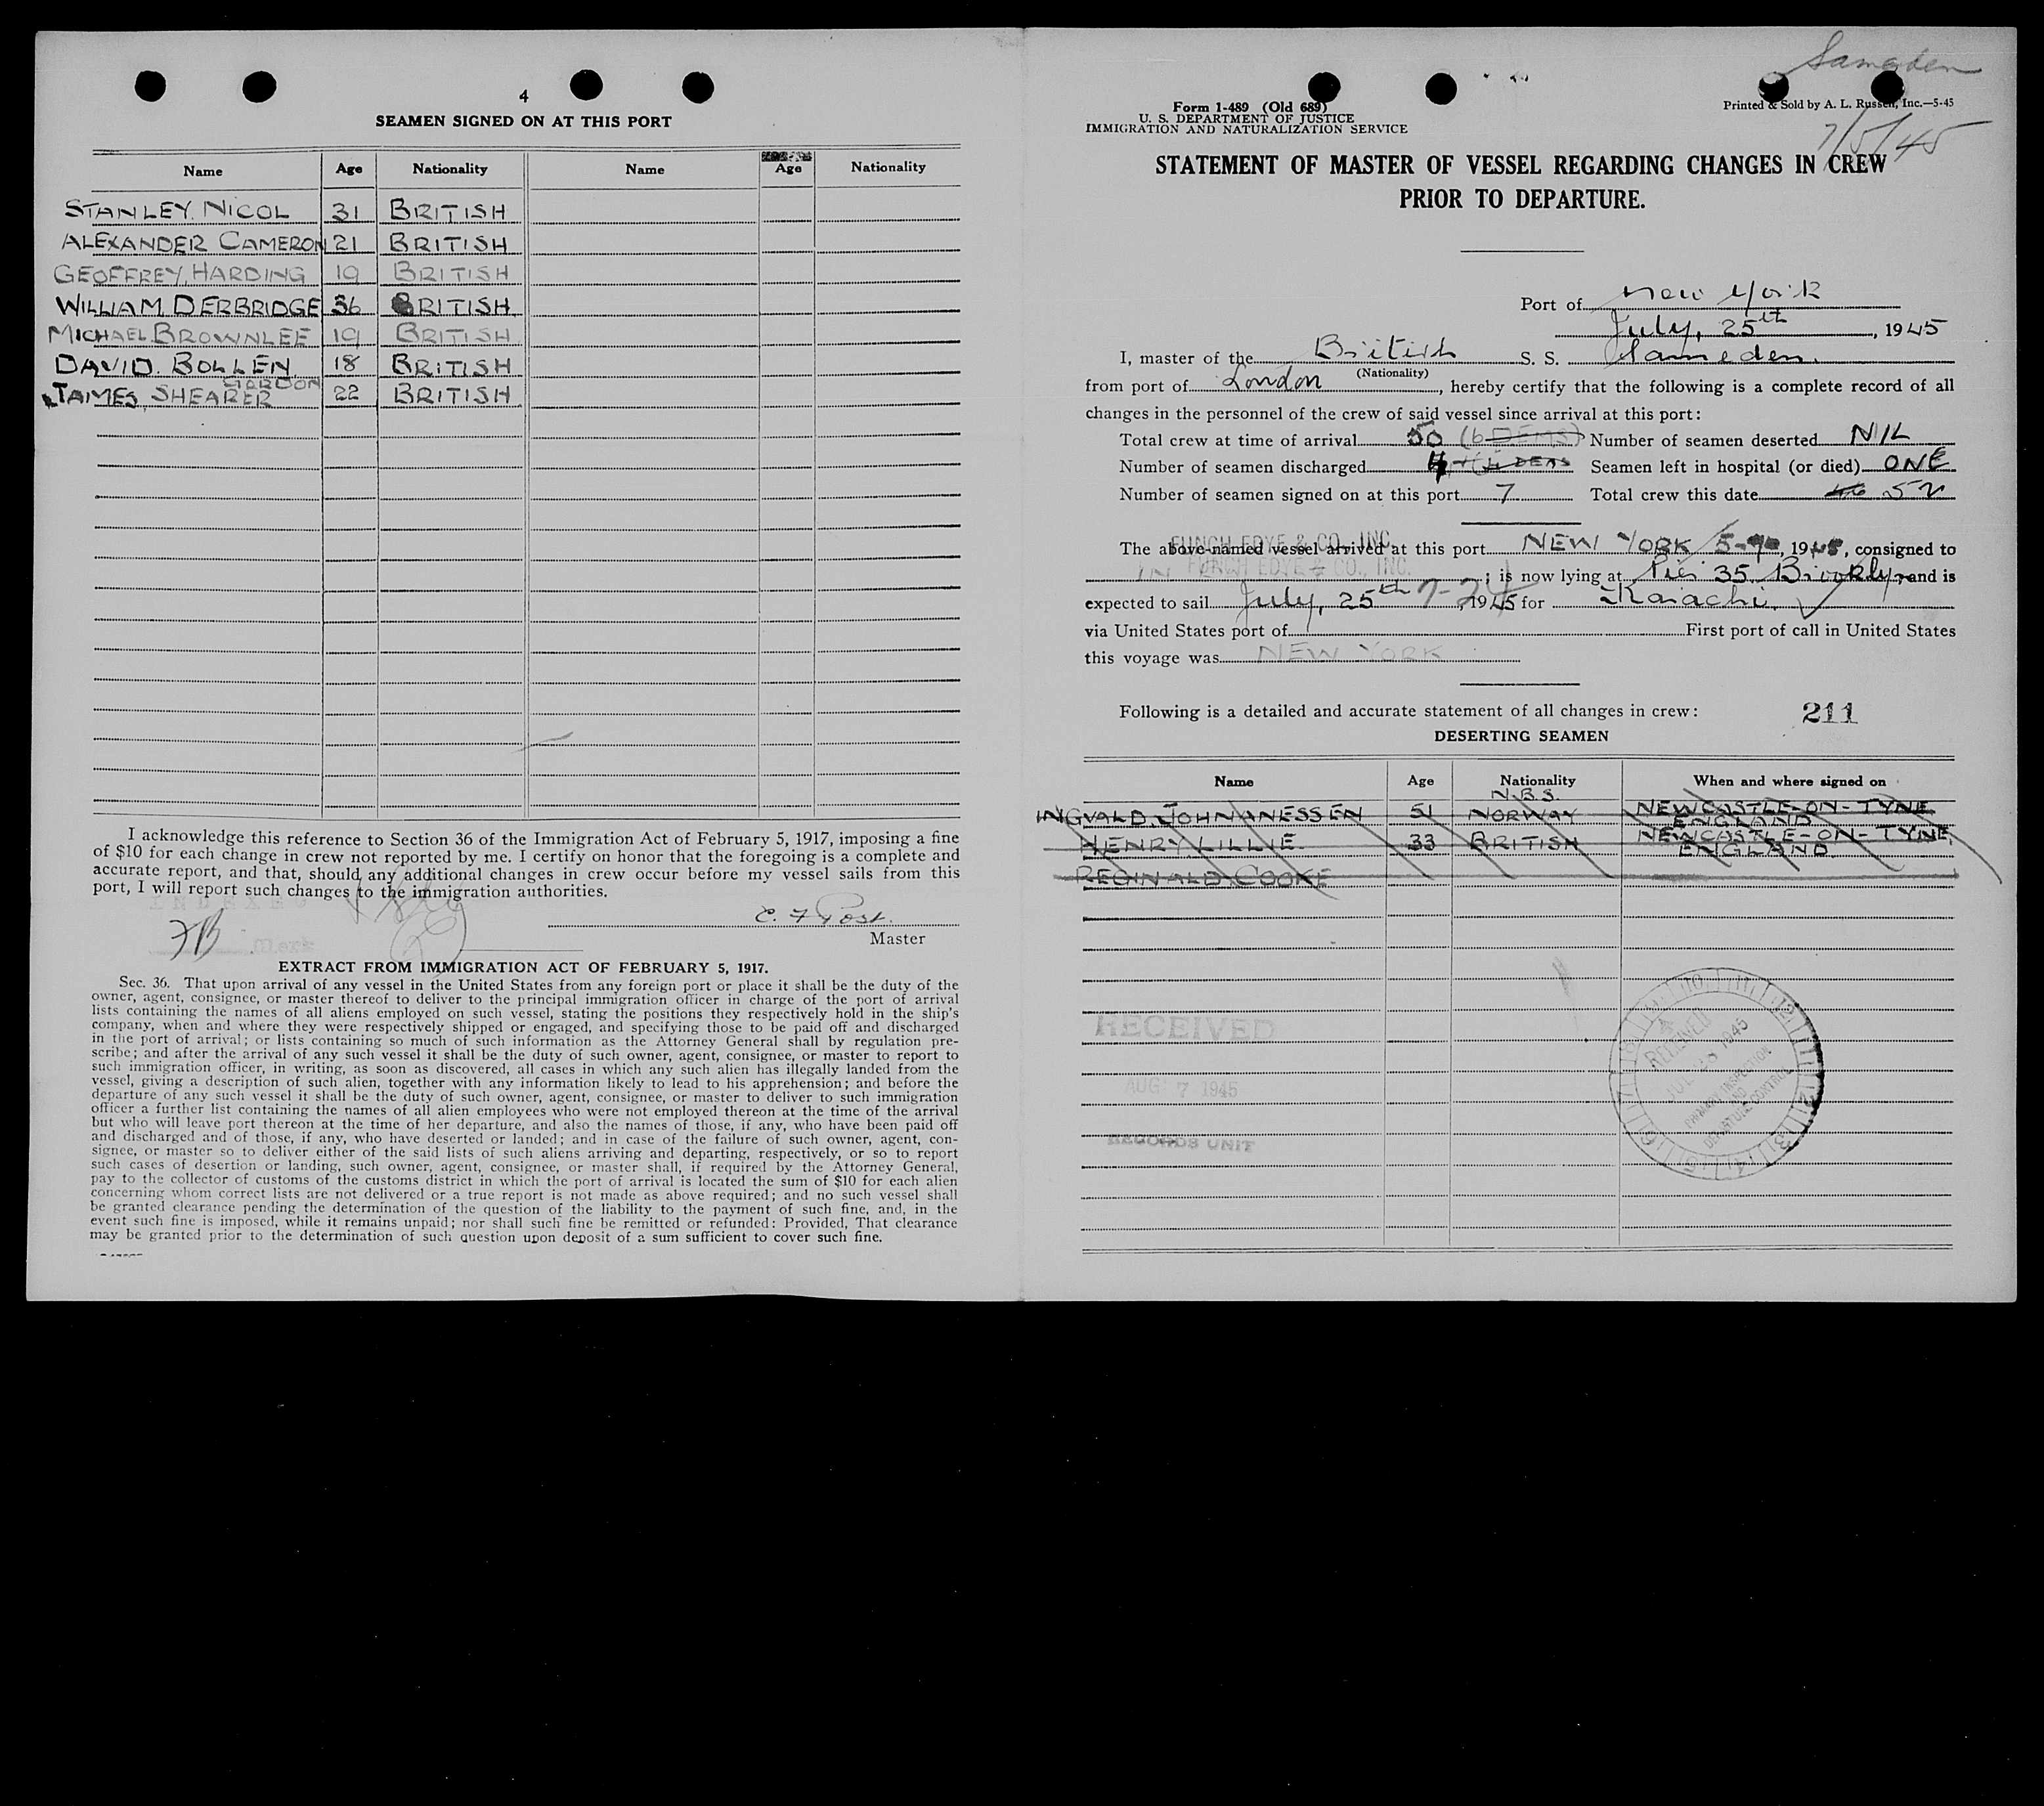 4
SEAMEN SIGNED ON AT THIS PORT
Name Age Nationality Name Age Nationality
STANLEY. NICOL 31 BRITISH
ALEXANDER CAMERON 21 BRITISH
GEOFFREY. HARDING 19 BRITISH
WILLIAM DERBRIDGE 36 BRITISH
MICHAEL BROWNLEE 19 BRITISH
DAVID. BOLLEN 18 BRITISH
GORDON
JAMES SHEARER 22 BRITISH
I acknowledge this reference to Section 36 of the Immigration Act of February 5, 1917, imposing a fine
of $10 for each change in crew not reported by me. I certify on honor that the foregoing is a complete and
accurate report, and that, should any additional changes in crew occur before my vessel sails from this
port, I will report such changes to the immigration authorities.
INDEXED
C. F. Post.
Master
EXTRACT FROM IMMIGRATION ACT OF FEBRUARY 5, 1917.
Sec. 36. That upon arrival of any vessel in the United States from any foreign port or place it shall be the duty of the
owner, agent, consignee, or master thereof to deliver to the principal immigration officer in charge of the port of arrival
lists containing the names of all aliens employed on such vessel, stating the positions they respectively hold in the ship's
company, when and where they were respectively shipped or engaged, and specifying those to be paid off and discharged
in the port of arrival; or lists containing so much of such information as the Attorney General shall by regulation pre-
scribe; and after the arrival of any such vessel it shall be the duty of such owner, agent, consignee, or master to report to
such immigration officer, in writing, as soon as discovered, all cases in which any such alien has illegally landed from the
vessel, giving a description of such alien, together with any information likely to lead to his apprehension; and before the
departure of any such vessel it shall be the duty of such owner, agent, consignee, or master to deliver to such immigration
officer a further list containing the names of all alien employees who were not employed thereon at the time of the arrival
but who will leave port thereon at the time of her departure, and also the names of those, if any, who have been paid off
and discharged and of those, if any, who have deserted or landed; and in case of the failure of such owner, agent, con-
signee, or master so to deliver either of the said lists of such aliens arriving and departing, respectively, or so to report
such cases of desertion or landing, such owner, agent, consignee, or master shall, if required by the Attorney General,
pay to the collector of customs of the customs district in which the port of arrival is located the sum of $10 for each alien
concerning whom correct lists are not delivered or a true report is not made as above required; and no such vessel shall
be granted clearance pending the determination of the question of the liability to the payment of such fine, and, in the
event such fine is imposed, while it remains unpaid; nor shall such fine be remitted or refunded: Provided, That clearance
may be granted prior to the determination of such question upon deposit of a sum sufficient to cover such fine.
Sameden
7/5/45
Form I-489 (Old 689)
U. S. DEPARTMENT OF JUSTICE
IMMIGRATION AND NATURALIZATION SERVICE
Printed & Sold by A. L. Russell, Inc.—5-45
STATEMENT OF MASTER OF VESSEL REGARDING CHANGES IN CREW
PRIOR TO DEPARTURE.
Port of New York
July, 25th, 1945
I, master of the British S. S. Sameden.
(Nationality)
from port of London, hereby certify that the following is a complete record of all
changes in the personnel of the crew of said vessel since arrival at this port:
Total crew at time of arrival 50 (6 DEMS) Number of seamen deserted NIL
Number of seamen discharged 4 Seamen left in hospital (or died) ONE
Number of seamen signed on at this port 7 Total crew this date 46 52
The above-named vessel arrived at this port NEW YORK 1945, consigned to
FUNCH EDYE & CO., INC.
FUNCH EDYE & CO., INC. ; is now lying at Pier 35 Brooklyn and is
expected to sail July, 25th 7-24, 1945 for Karachi.
via United States port of First port of call in United States
this voyage was NEW YORK
Following is a detailed and accurate statement of all changes in crew: 211
DESERTING SEAMEN
Name Age Nationality When and where signed on
INGVALD JOHNANESSEN 51 N.B.S. NORWAY NEWCASTLE-ON-TYNE ENGLAND
HENRY LILLIE 33 BRITISH NEWCASTLE-ON-TYNE, ENGLAND.
REGINALD COOKE
RECEIVED
AUG 7 1945
RECORDS UNIT
RECEIVED
1945
PRIMARY INSPECTION
AND
DEPARTURE CONTROL